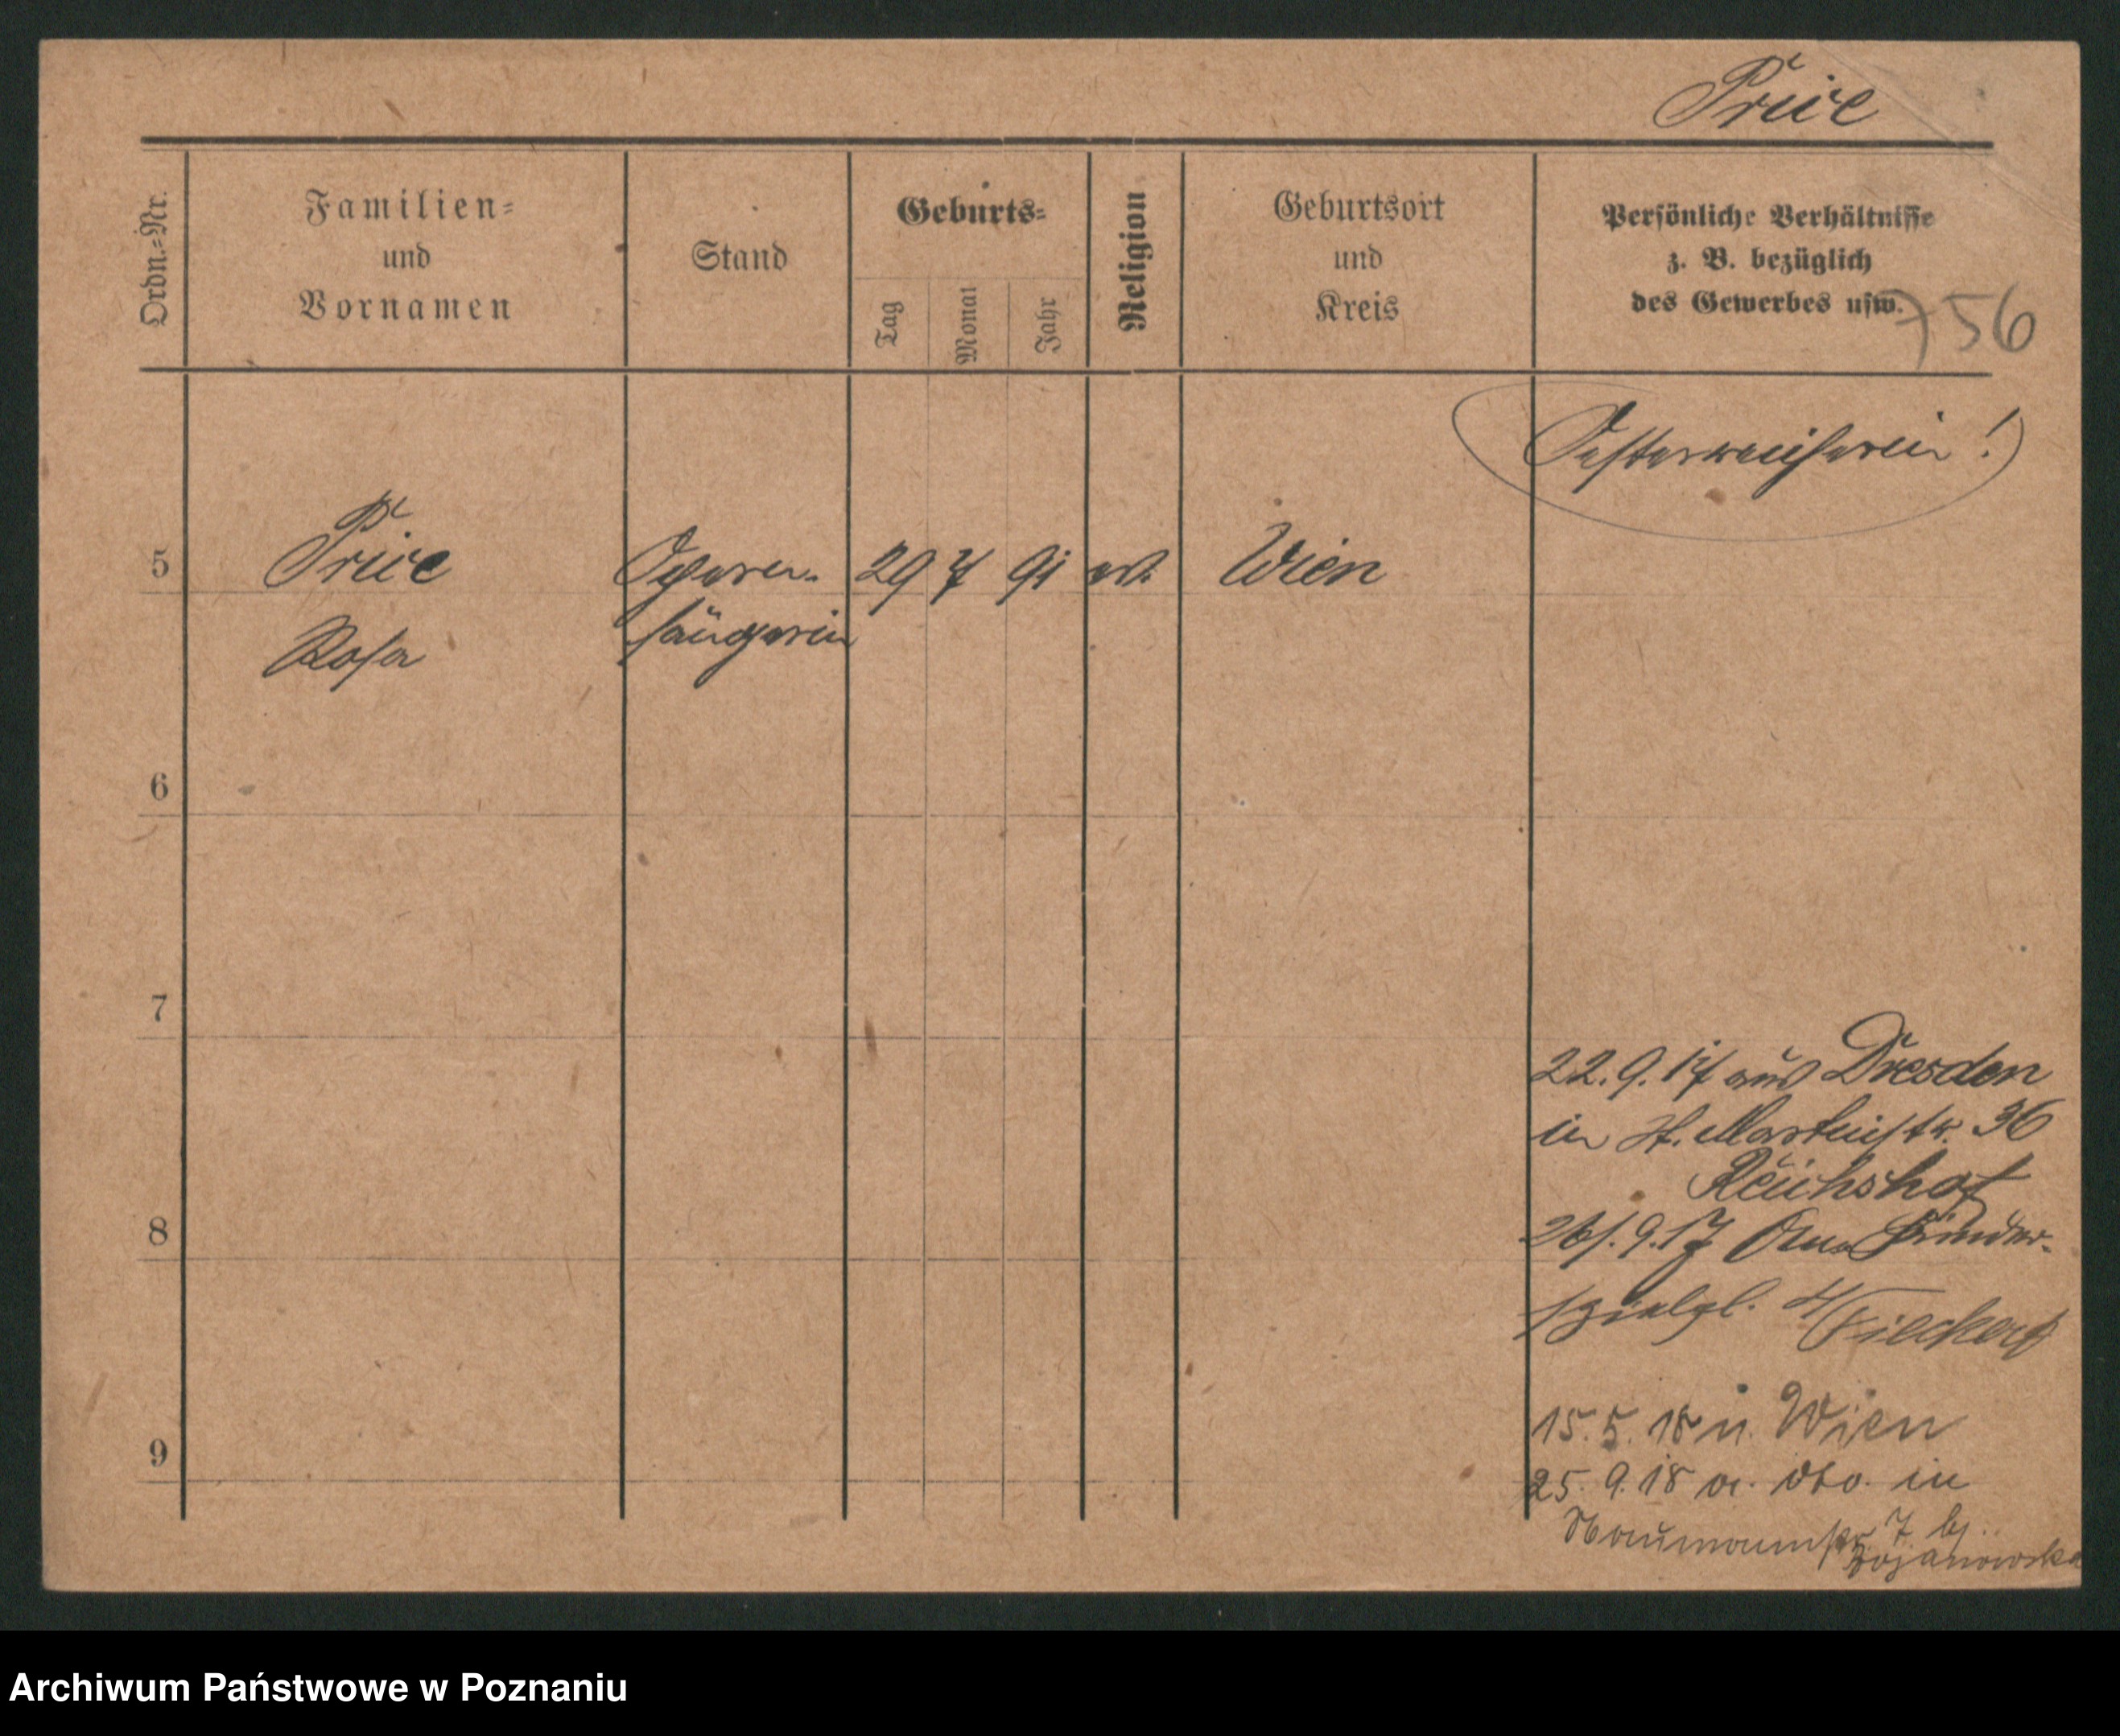 Price
Ordn.=Nr.
Familien=
und
Vornamen
Stand
Geburts=
Tag
Monat
Jahr
Religion
Geburtsort
und
Kreis
Persönliche Verhältnisse
z. B. bezüglich
des Gewerbes usw.
756
Oesterreicherin!
5 Price Opern- 29 7 91 ev. Wien
Rosa sängerin
6
7
22.9.17 aus Dresden
in St. Martinstr. 36
Reichshof
8
26.9.17 Am
4
9
15.5.18 n. Wien
25.9.18 a. dto. in
Naumannstr 7 bj.
Bojanowska
Archiwum Państwowe w Poznaniu